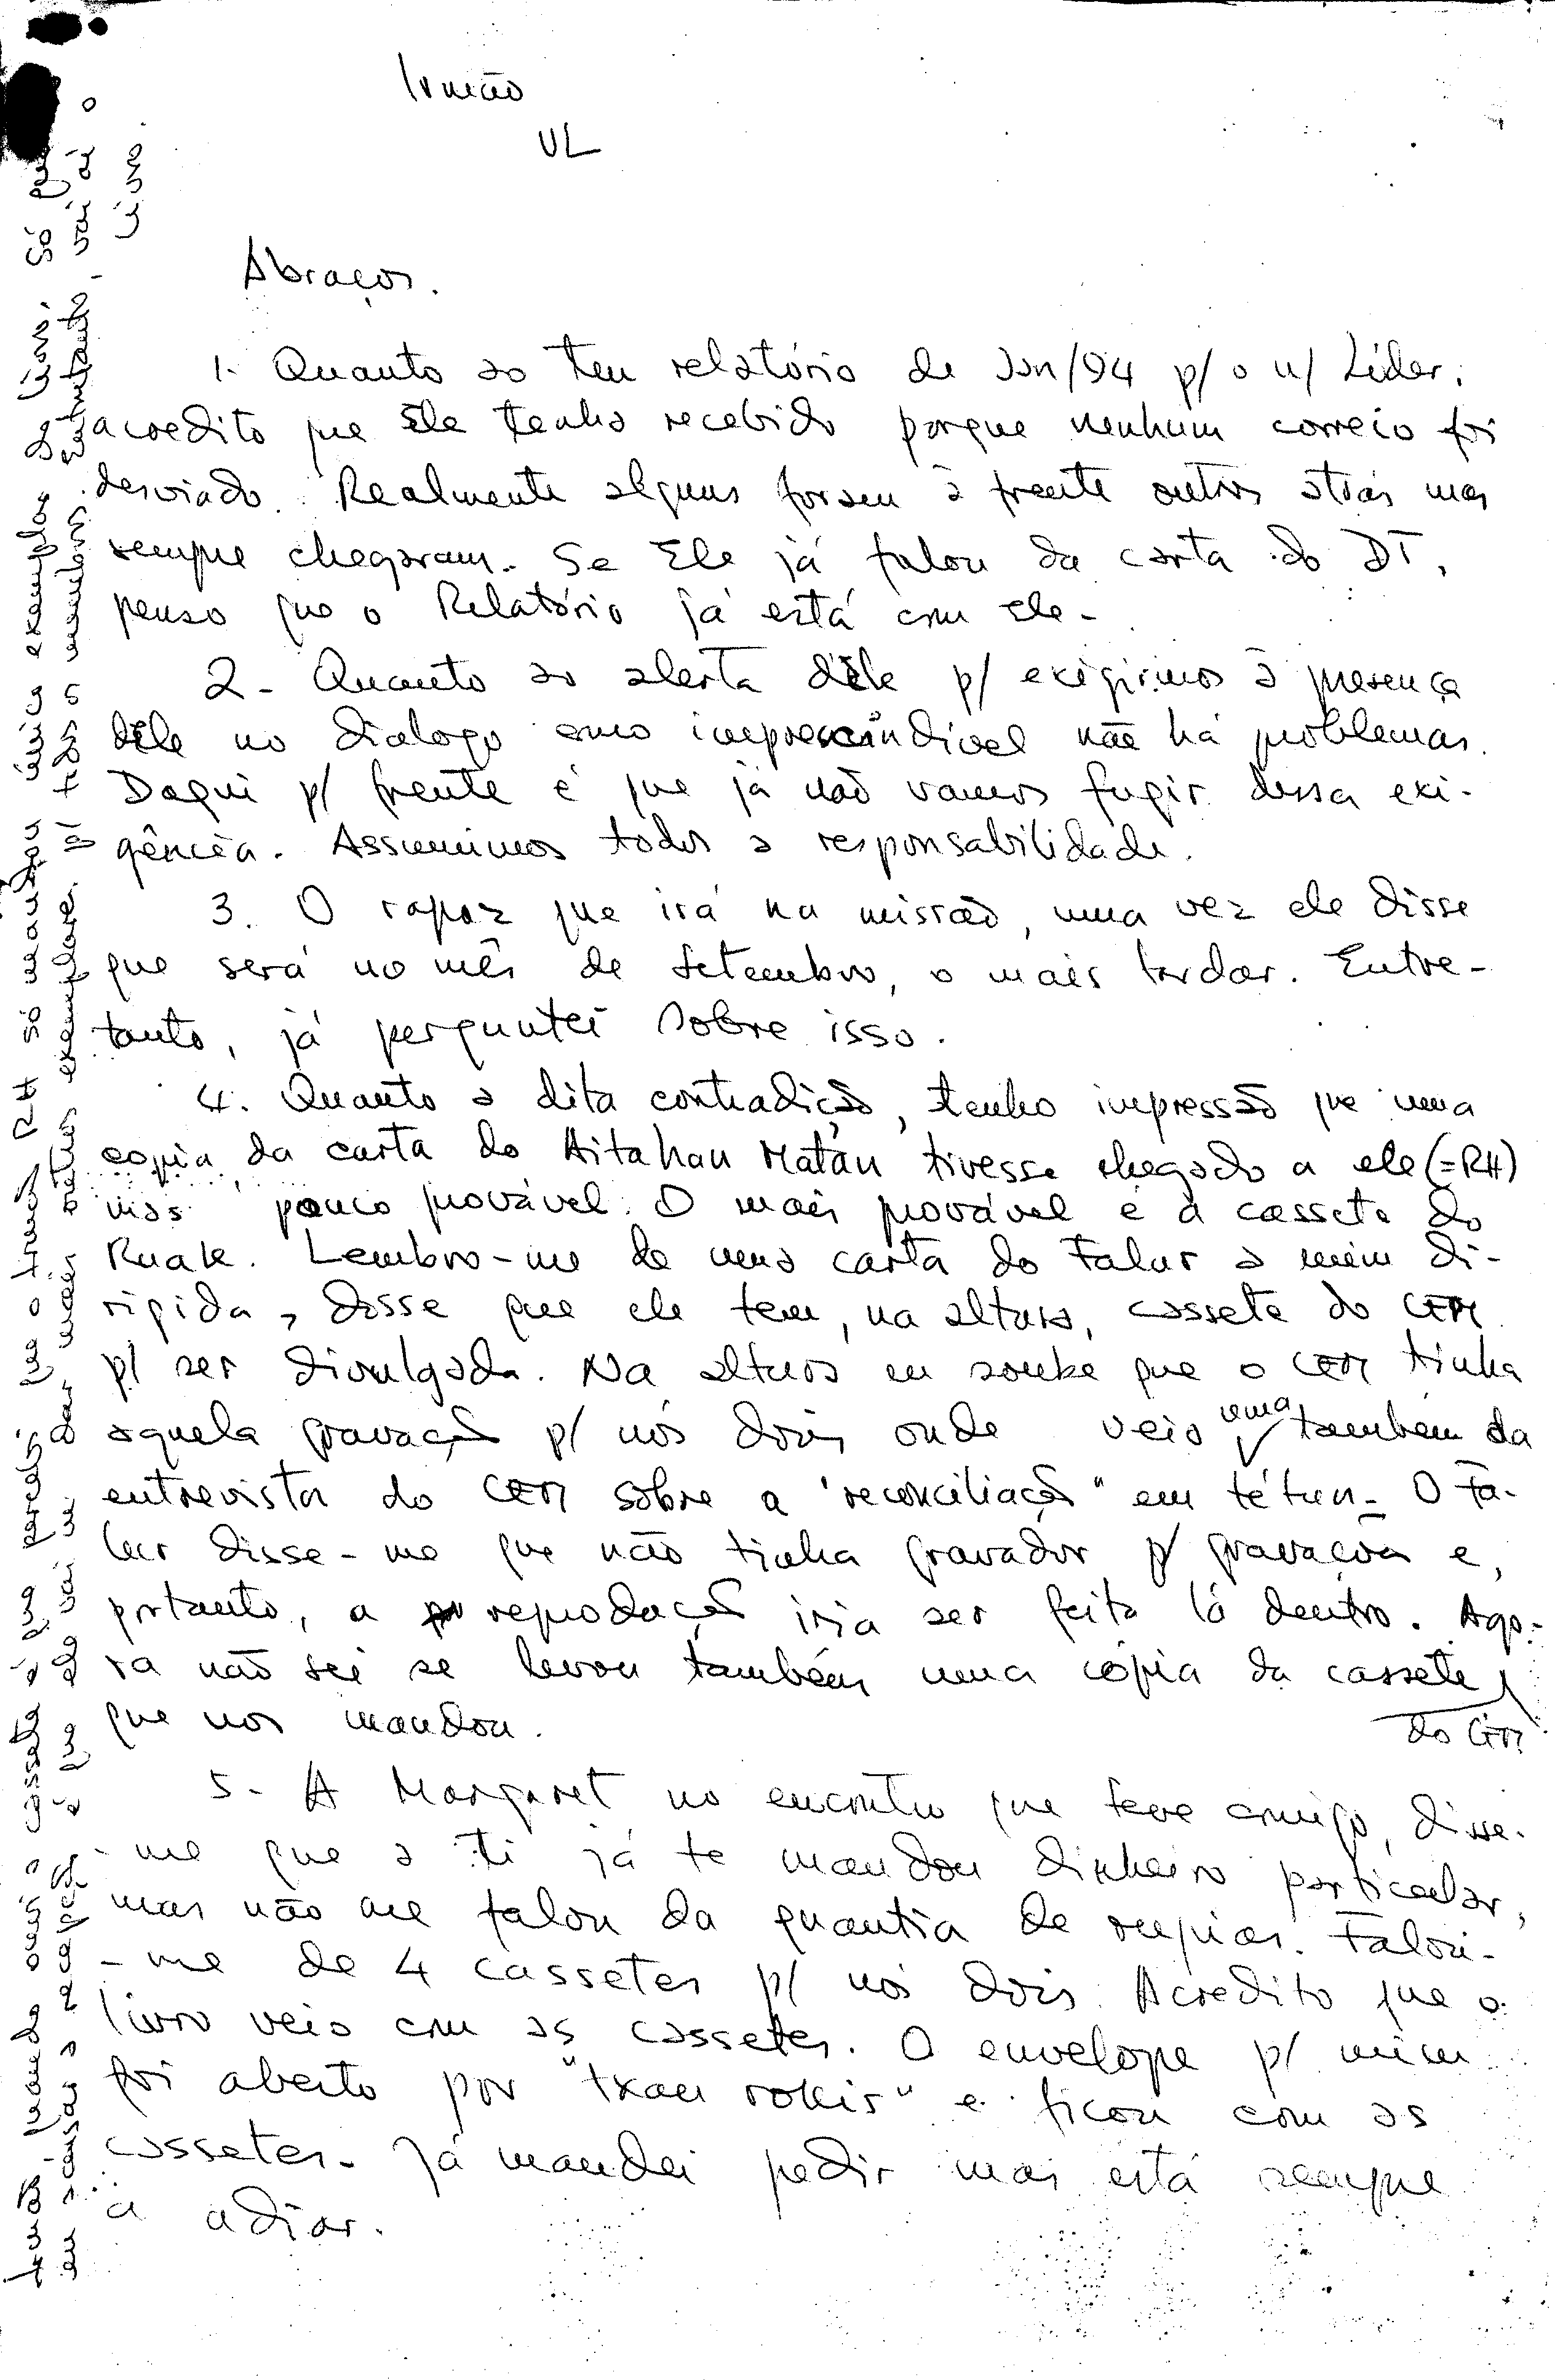 Irmão
UL
Abraços.
1. Quanto ao teu relatório de Jun/94 p/ o n/ Líder,
acredito que Ele tenha recebido porque nenhum correio foi
desviado. Realmente alguns foram à frente outros atrás mas
sempre chegaram. Se Ele já falou da carta do DT,
penso que o Relatório já está com Ele.
2- Quanto ao alerta dEle p/ exigirmos a presença
dEle no dialogo como imprescindível não há problemas.
Daqui p/ frente é que já não vamos fugir dessa exi-
gência. Assumimos todos a responsabilidade.
3. O rapaz que irá na missão, uma vez ele disse
que será no mês de Setembro, o mais tardar. Entre-
tanto, já perguntei sobre isso.
4. Quanto a dita contradição, tenho impressão que uma
copia da carta do Aitahan Matan tivesse chegado a ele (=RH)
mas pouco provável. O mais provável é a cassete do
Ruak. Lembro-me de uma carta do Falur a mim di-
rigida, disse que ele tem, na altura, cassete do CEM
p/ ser divulgada. Na altura eu soube que o CEM tinha
aquela gravação p/ nós dois onde veio uma também da
entrevista do CEM sobre a "reconciliação" em tétun. O Fa-
lur disse-me que não tinha gravador p/ gravações e,
portanto, a reprodução iria ser feita lá dentro. Ago-
ra não sei se levou também uma cópia da cassete
do CEM
que nos mandou.
5- A Margaret no encontro que teve comigo, disse-
-me que a ti já te mandou dinheiro particular,
mas não me falou da quantia de rupias. Falou-
-me de 4 cassetes p/ nós dois. Acredito que o
livro veio com as cassetes. O envelope p/ mim
foi aberto por "txau rokir" e ficou com as
cassetes. Já mandei pedir mas está sempre
a adiar.
RH só mandou único exemplar do livro. Só que